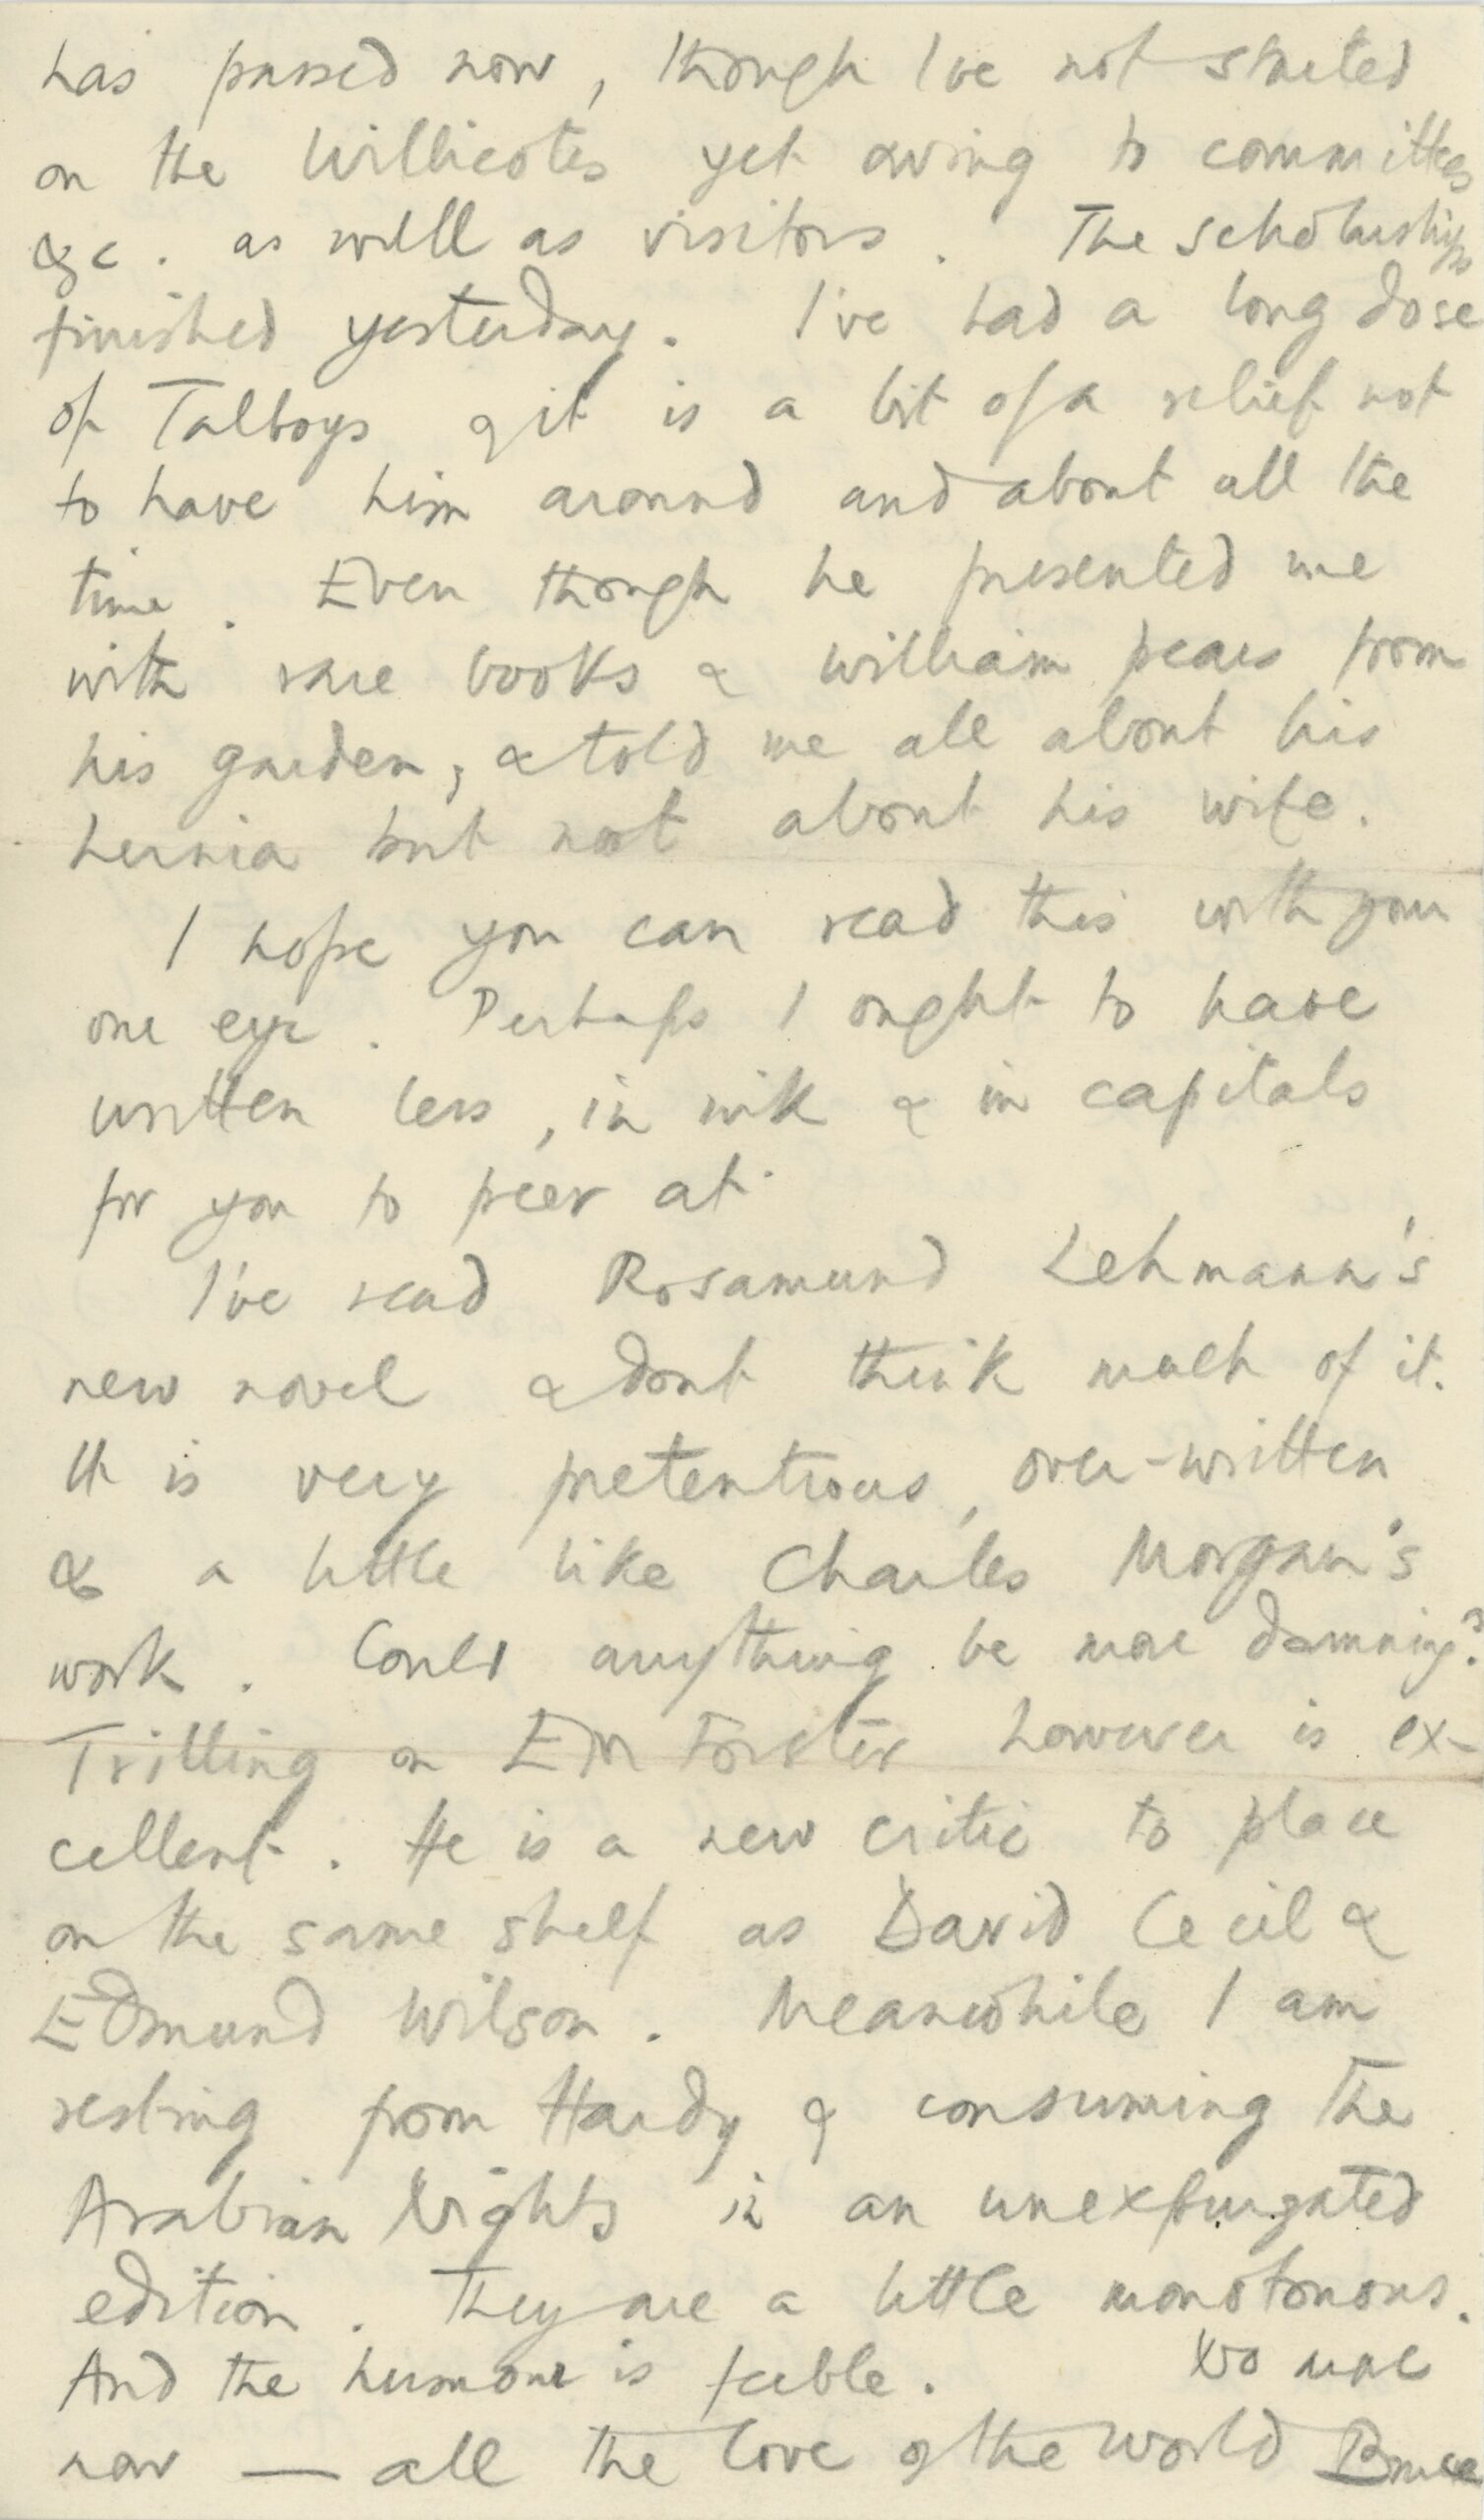 has passed now, though I've not started
on the Willicotes yet owing to committees
&c. as well as visitors. The scholarships
finished yesterday. I've had a long dose
of Talboys & it is a bit of a relief not
to have him around and about all the
time. Even though he presented me
with rare books & william pears from
his garden, & told me all about his
hernia but not about his wife.
I hope you can read this with your
one eye. Perhaps I ought to have
written less, in ink & in capitals
for you to peer at.
I've read Rosamund Lehmann's
new novel & dont think much of it.
It is very pretentious, over-written
& a little like Charles Morgan's
work. Could anything be more damning?
Trilling on EM Forster however is ex-
cellent. He is a new critic to place
on the same shelf as David Cecil &
Edmund Wilson. Meanwhile I am
resting from Hardy & consuming the
Arabian Nights in an unexpurgated
edition. They are a little monotonous.
And the humour is feeble. No more
now — all the love of the world Bruce